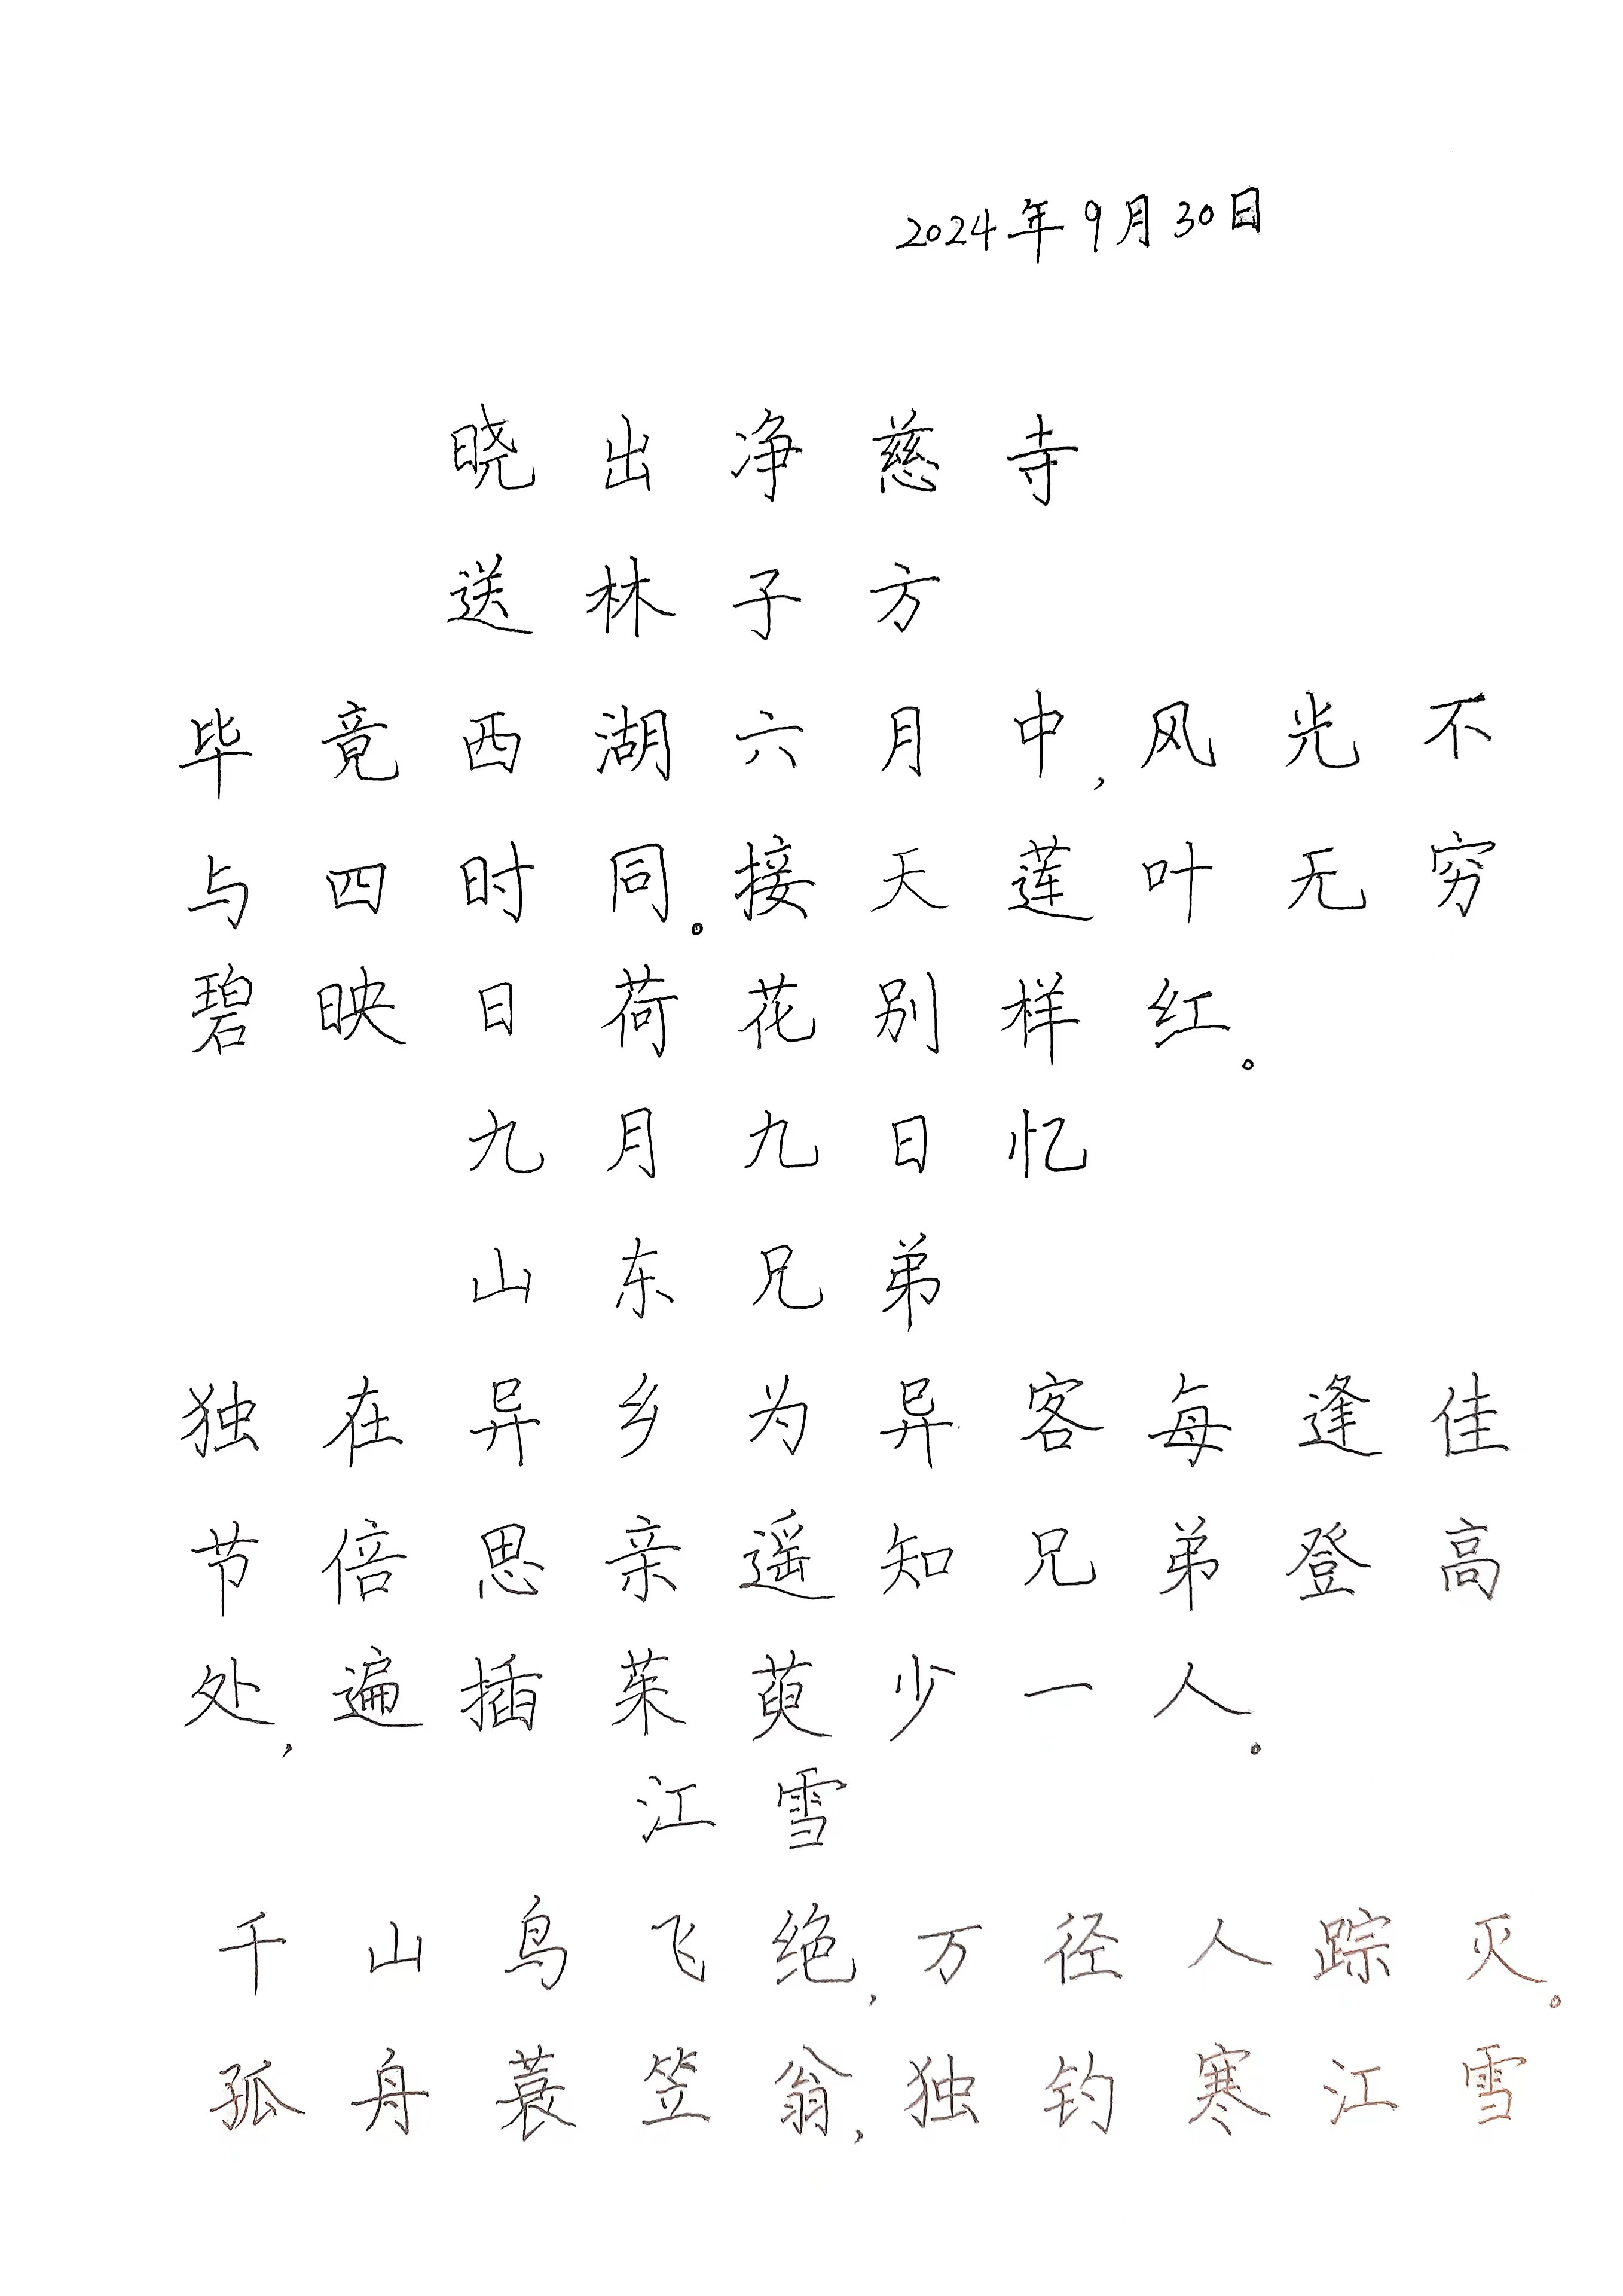 2024年9月30日
晓出净慈寺
送林子方
毕竟西湖六月中,风光不
与四时同。接天莲叶无穷
碧映日荷花别样红。
九月九日忆
山东兄弟
独在异乡为异客每逢佳
节倍思亲遥知兄弟登高
处,遍插茱萸少一人。
江雪
千山鸟飞绝,万径人踪灭。
孤舟蓑笠翁,独钓寒江雪